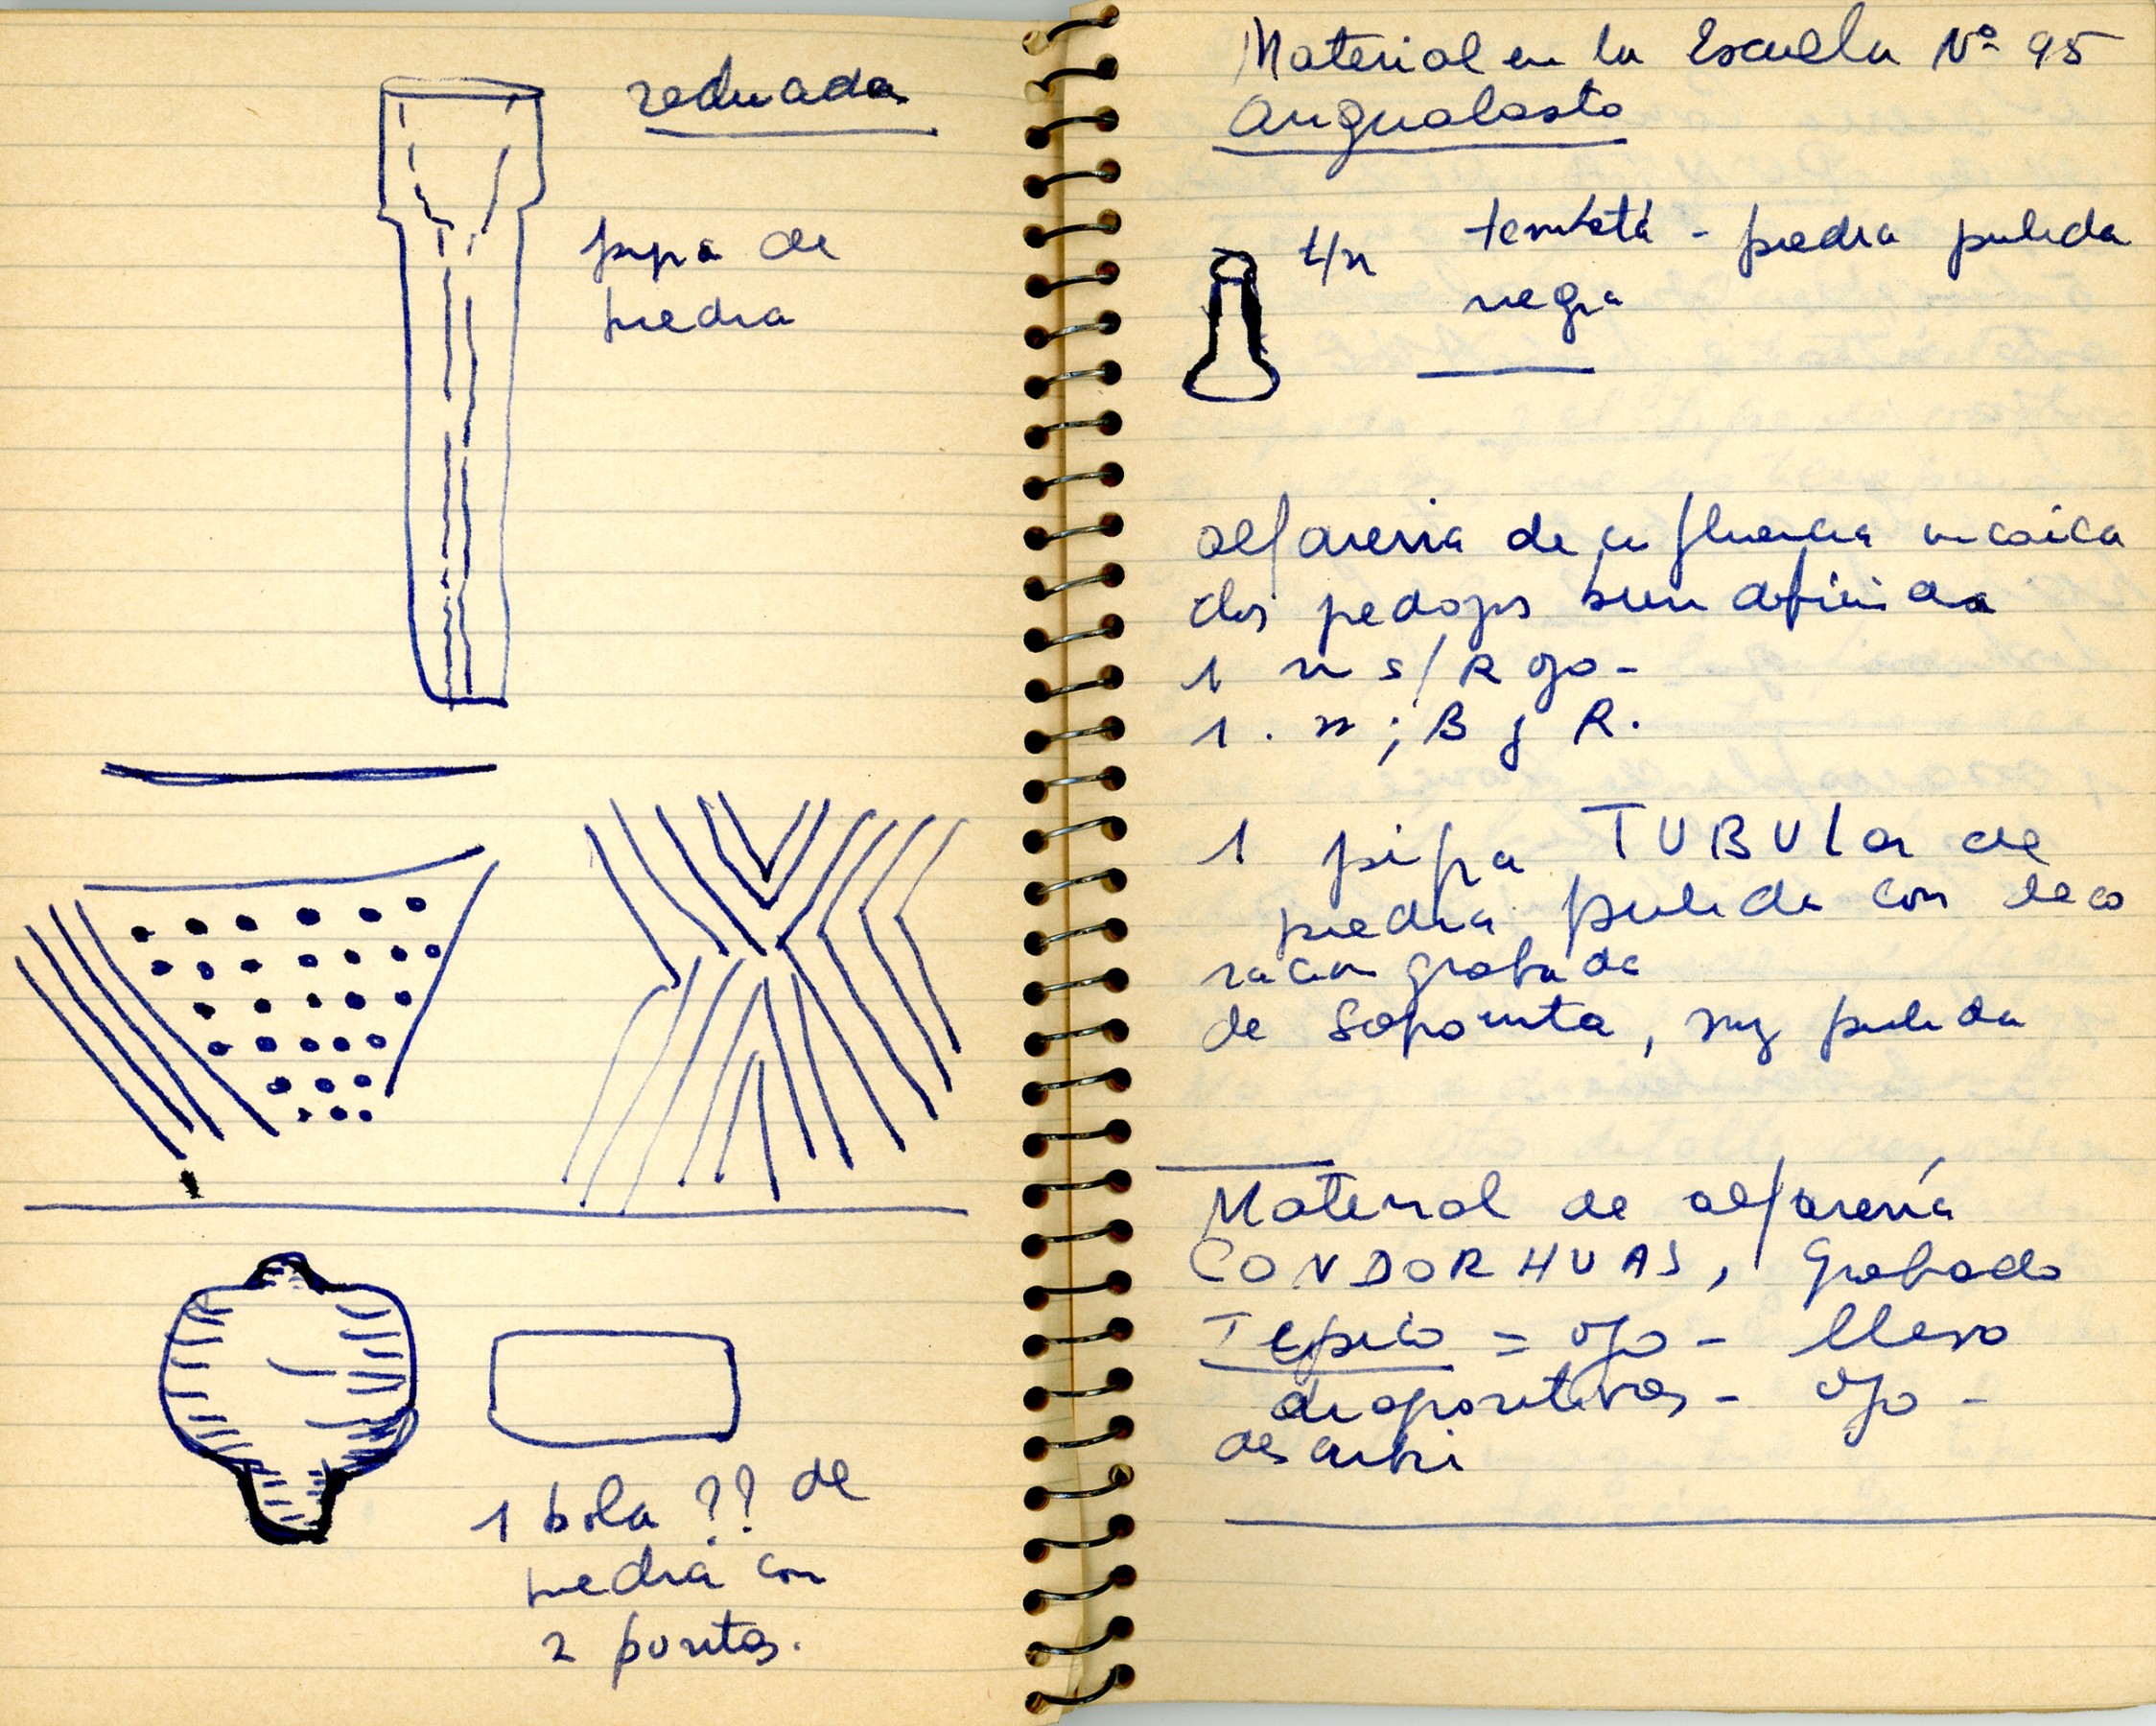 reducida
pipa de
piedra
1 bola ?? de
piedra con
2 puntas.
Material en la Escuela Nº 95
Angualasto
t/n tembetá - piedra pulida
negra
alfareria de influencia incaica
dos pedazos bien definida
1 n s/ Rojo -
1 . n ; B y R.
1 pipa TUBULar de
piedra pulida con deco
racion grabada
de Saponita, muy pulida
Material de alfarería
CONDORHUAS, Grabado
Tipico = ojo - llevo
diapositivas - ojo -
describi